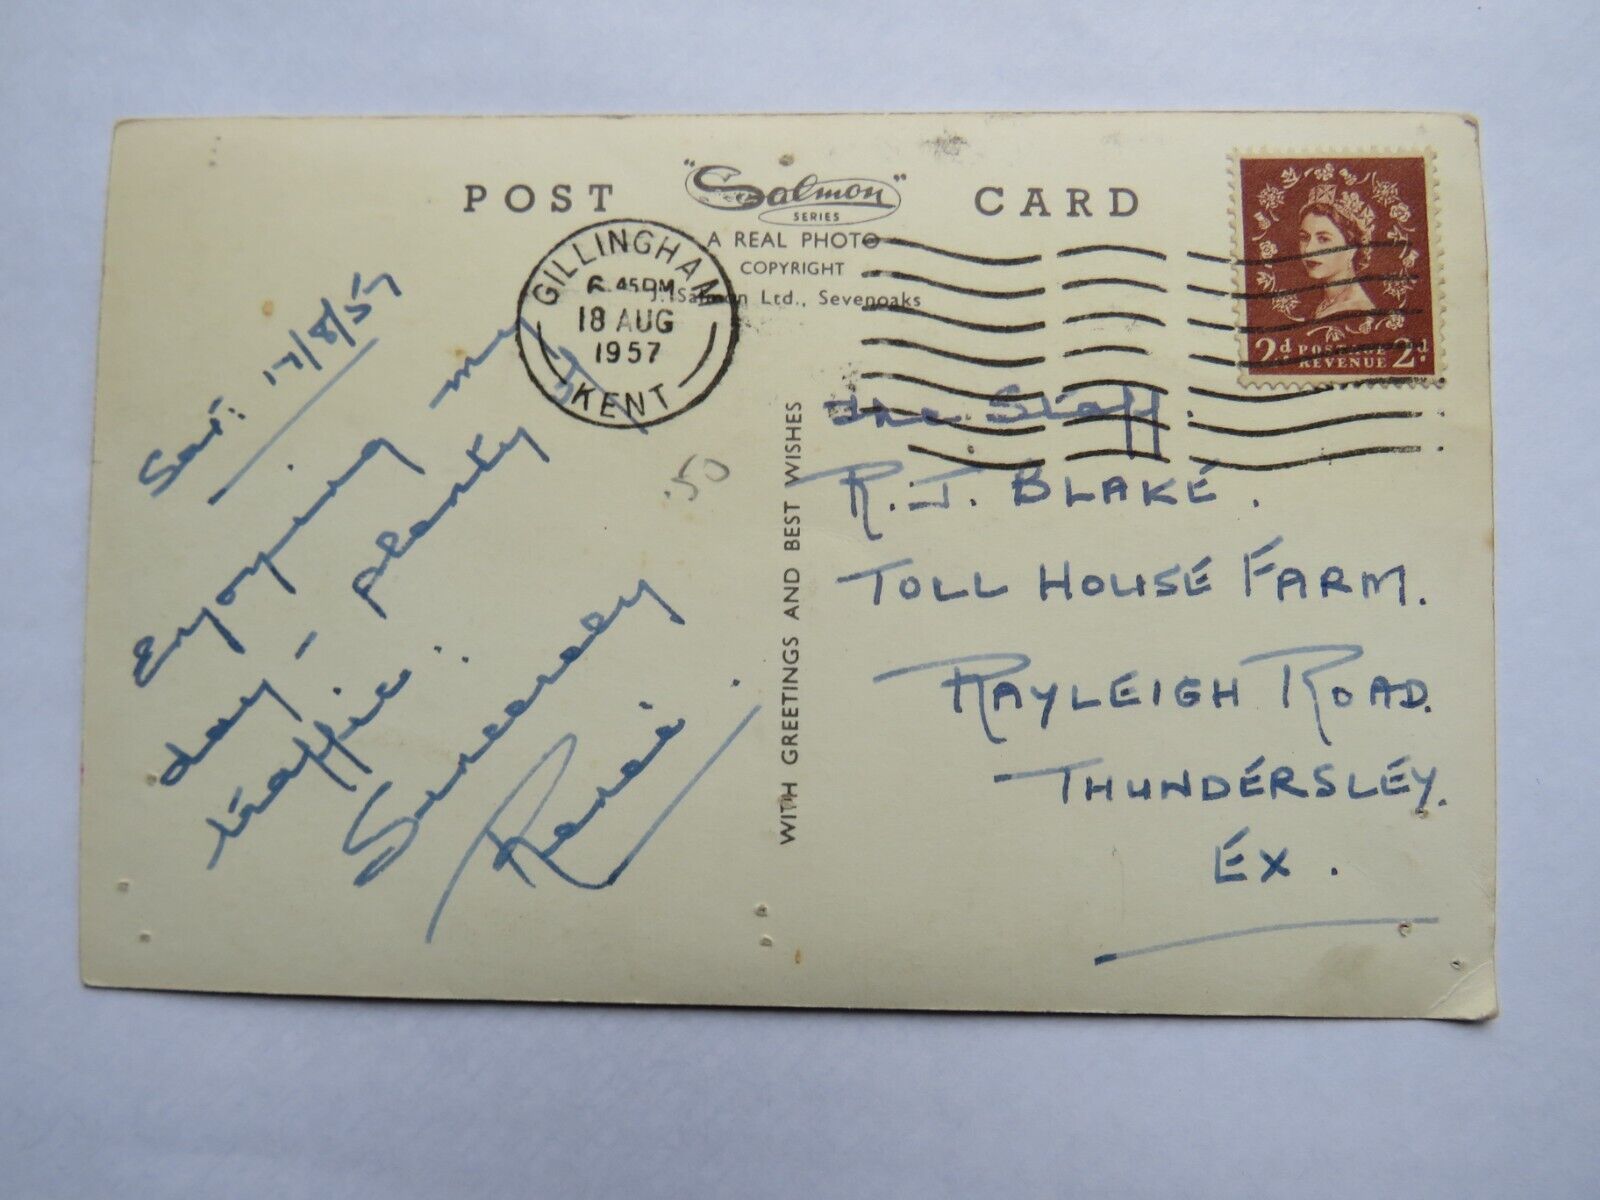 POST "Salmon" CARD
SERIES
A REAL PHOTO
COPYRIGHT
J. Salmon Ltd., Sevenoaks
GILLINGHAM
6.45PM
18 AUG
1957
KENT
2d POSTAGE 2d.
REVENUE
Sat: 17/8/57
Enjoying my
day - plenty of
traffic.
Sincerely
.50
WITH GREETINGS AND BEST WISHES
The Staff.
R. J. BLAKE.
TOLL HOUSE FARM.
RAYLEIGH ROAD.
THUNDERSLEY.
EX.